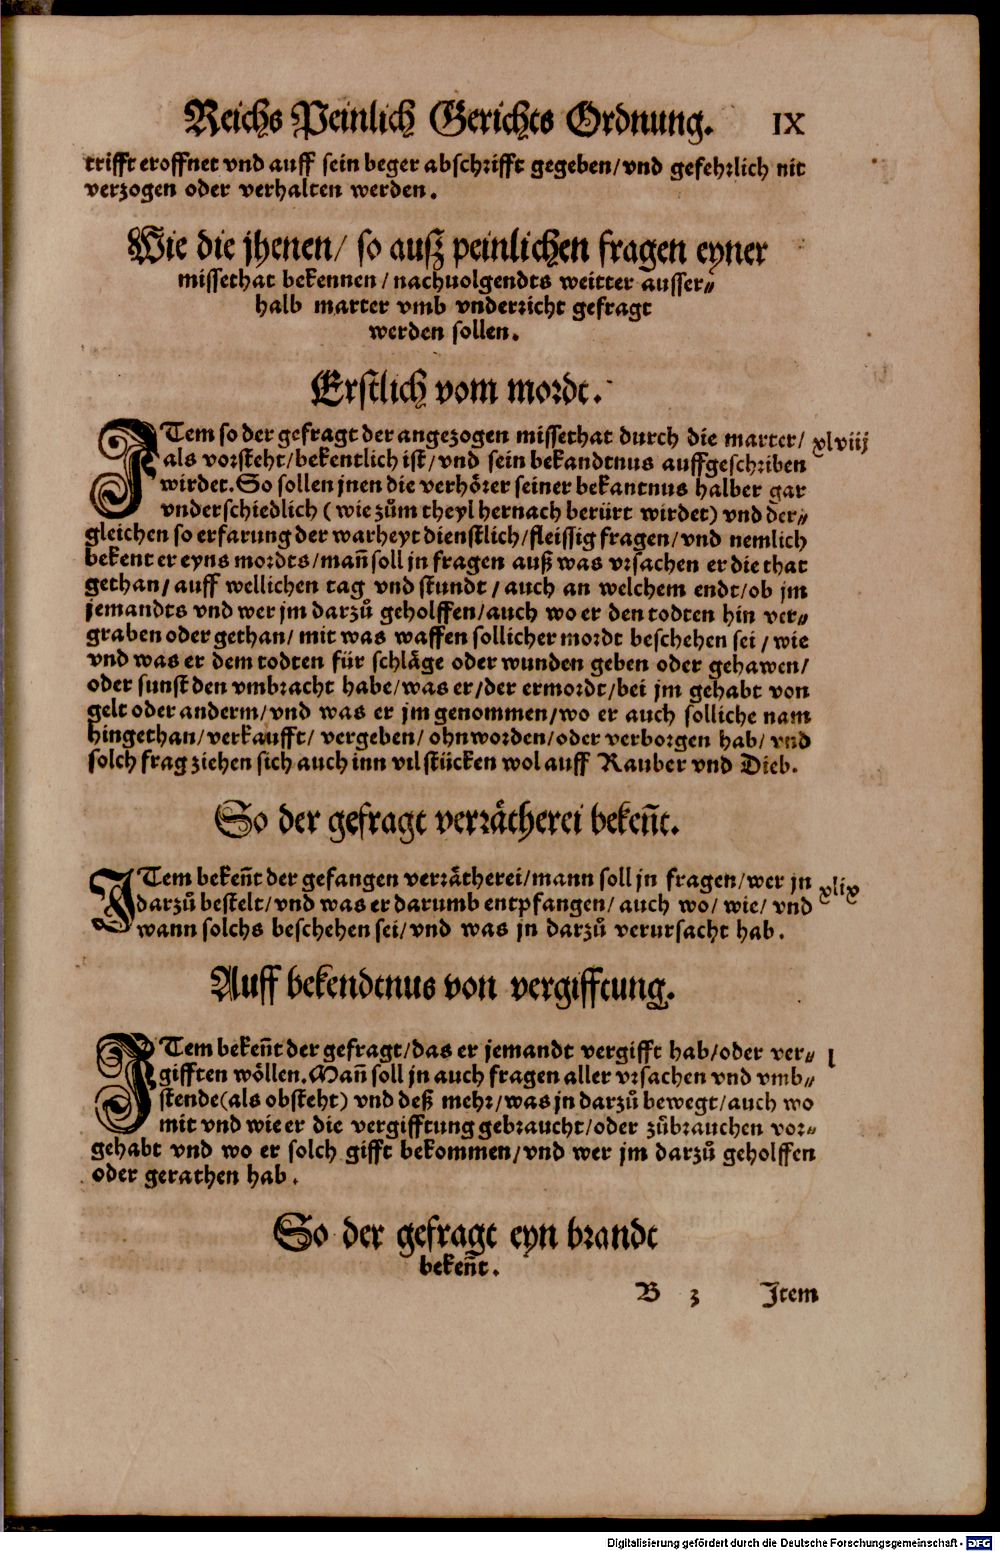 Reichs Peinlich Gerichts Ordnung. IX
trifft eroffnet vnd auff sein beger abschrifft gegeben/vnd gefehrlich nit
verzogen oder verhalten werden.
Wie die jhenen/ so auß peinlichen fragen eyner
missethat bekennen/nachuolgendts weitter ausser⸗
halb marter vmb vnderricht gefragt
werden sollen.
Erstlich vom mordt.
ITem so der gefragt der angezogen missethat durch die marter/ xlviij
als vorsteht/bekentlich ist/vnd sein bekandtnus auffgeschriben
wirdet. So sollen jnen die verhörer seiner bekantnus halber gar
vnderschiedlich (wie zům theyl hernach berürt wirdet) vnd der⸗
gleichen so erfarung der warheyt dienstlich/fleissig fragen/vnd nemlich
bekent er eyns mordts/mañ soll jn fragen auß was vrsachen er die that
gethan/auff wellichen tag vnd stundt/auch an welchem endt/ob jm
jemandts vnd wer jm darzů geholffen/auch wo er den todten hin ver⸗
graben oder gethan/mit was waffen sollicher mordt beschehen sei/wie
vnd was er dem todten für schläge oder wunden geben oder gehawen/
oder sunst den vmbracht habe/was er/der ermordt/bei jm gehabt von
gelt oder anderm/vnd was er jm genommen/wo er auch solliche nam
hingethan/verkaufft/vergeben/ohnworden/oder verborgen hab/vnd
solch frag ziehen sich auch inn vil stücken wol auff Rauber vnd Dieb.
So der gefragt verrätherei bekeñt.
ITem bekeñt der gefangen verrätherei/mann soll jn fragen/wer jn xlix
darzů bestelt/vnd was er darumb entpfangen/auch wo/wie/vnd
wann solchs beschehen sei/vnd was jn darzů verursacht hab.
Auff bekendtnus von vergifftung.
ITem bekeñt der gefragt/das er jemandt vergifft hab/oder ver⸗ l
gifften wöllen. Mañ soll jn auch fragen aller vrsachen vnd vmb⸗
stende(als obsteht) vnd deß mehr/was jn darzů bewegt/auch wo
mit vnd wie er die vergifftung gebraucht/oder zůbrauchen vor⸗
gehabt vnd wo er solch gifft bekommen/vnd wer jm darzů geholffen
oder gerathen hab.
So der gefragt eyn brandt
bekeñt.
B 3 Item
Digitalisierung gefördert durch die Deutsche Forschungsgemeinschaft - DFG